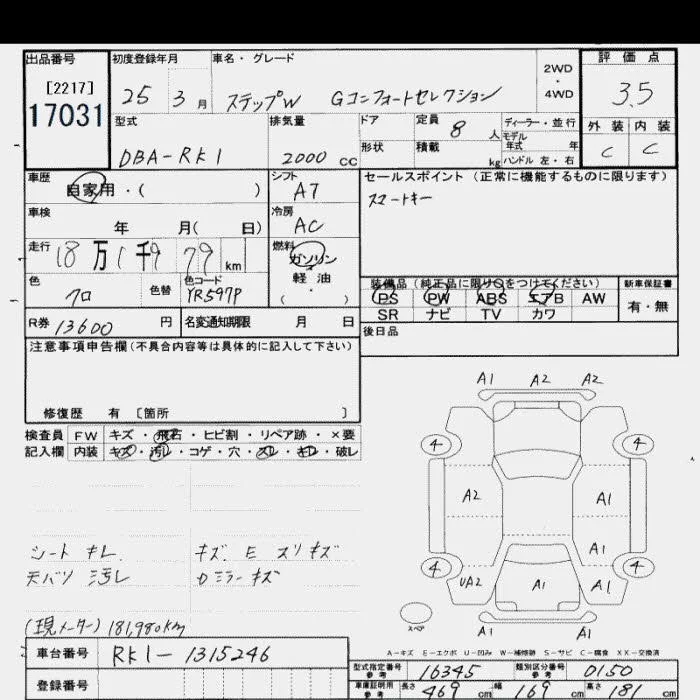 出品番号 初度登録年月 車名・グレード 2WD・4WD 評価点
[2217] 17031 25 3月 ステップW Gコンフォートセレクション 3.5
型式 排気量 ドア 定員 8人 ディーラー・並行 外装 内装
DBA-RK1 2000 CC 形状 積載 kg モデル年式 年 ハンドル 左・右 C C
車歴 自家用・( ) シフト A7 セールスポイント(正常に機能するものに限ります)
車検 年 月( 日) 冷房 AC スマートキー
走行 18万1千9 79 km 燃料 ガソリン 軽油 (・)
色 クロ 色替 色コード YR597P 装備品(純正品に限り○をつけてください) 新車保証書
PS PW ABS エアB AW 有・無
R券 13600円 名変通知期限 月 日 SR ナビ TV カワ
注意事項申告欄(不具合内容等は具体的に記入して下さい) 後日品
修復歴 有 [箇所 ]
検査員 FW キズ・飛石・ヒビ割・リペア跡・×要
記入欄 内装 キズ・汚レ・コゲ・穴・スレ・キレ・破レ
A1 A2 A2
4 4
A2 A1
A1
4 4
UA2 A1 A1
A1 A1
スペア
シートキレ. キズ. E スリキズ
天バリ汚レ Dミラーキズ
(現メーター) 181,980km
A-キズ E-エクボ U-凹み W-補修跡 S-サビ C-腐食 XX-交換済
車台番号 RK1-1315246 型式指定番号 参考 16345 類別区分番号 参考 0150
登録番号 車庫証明用 参考 長さ 469 cm 幅 169 cm 高さ 181 cm